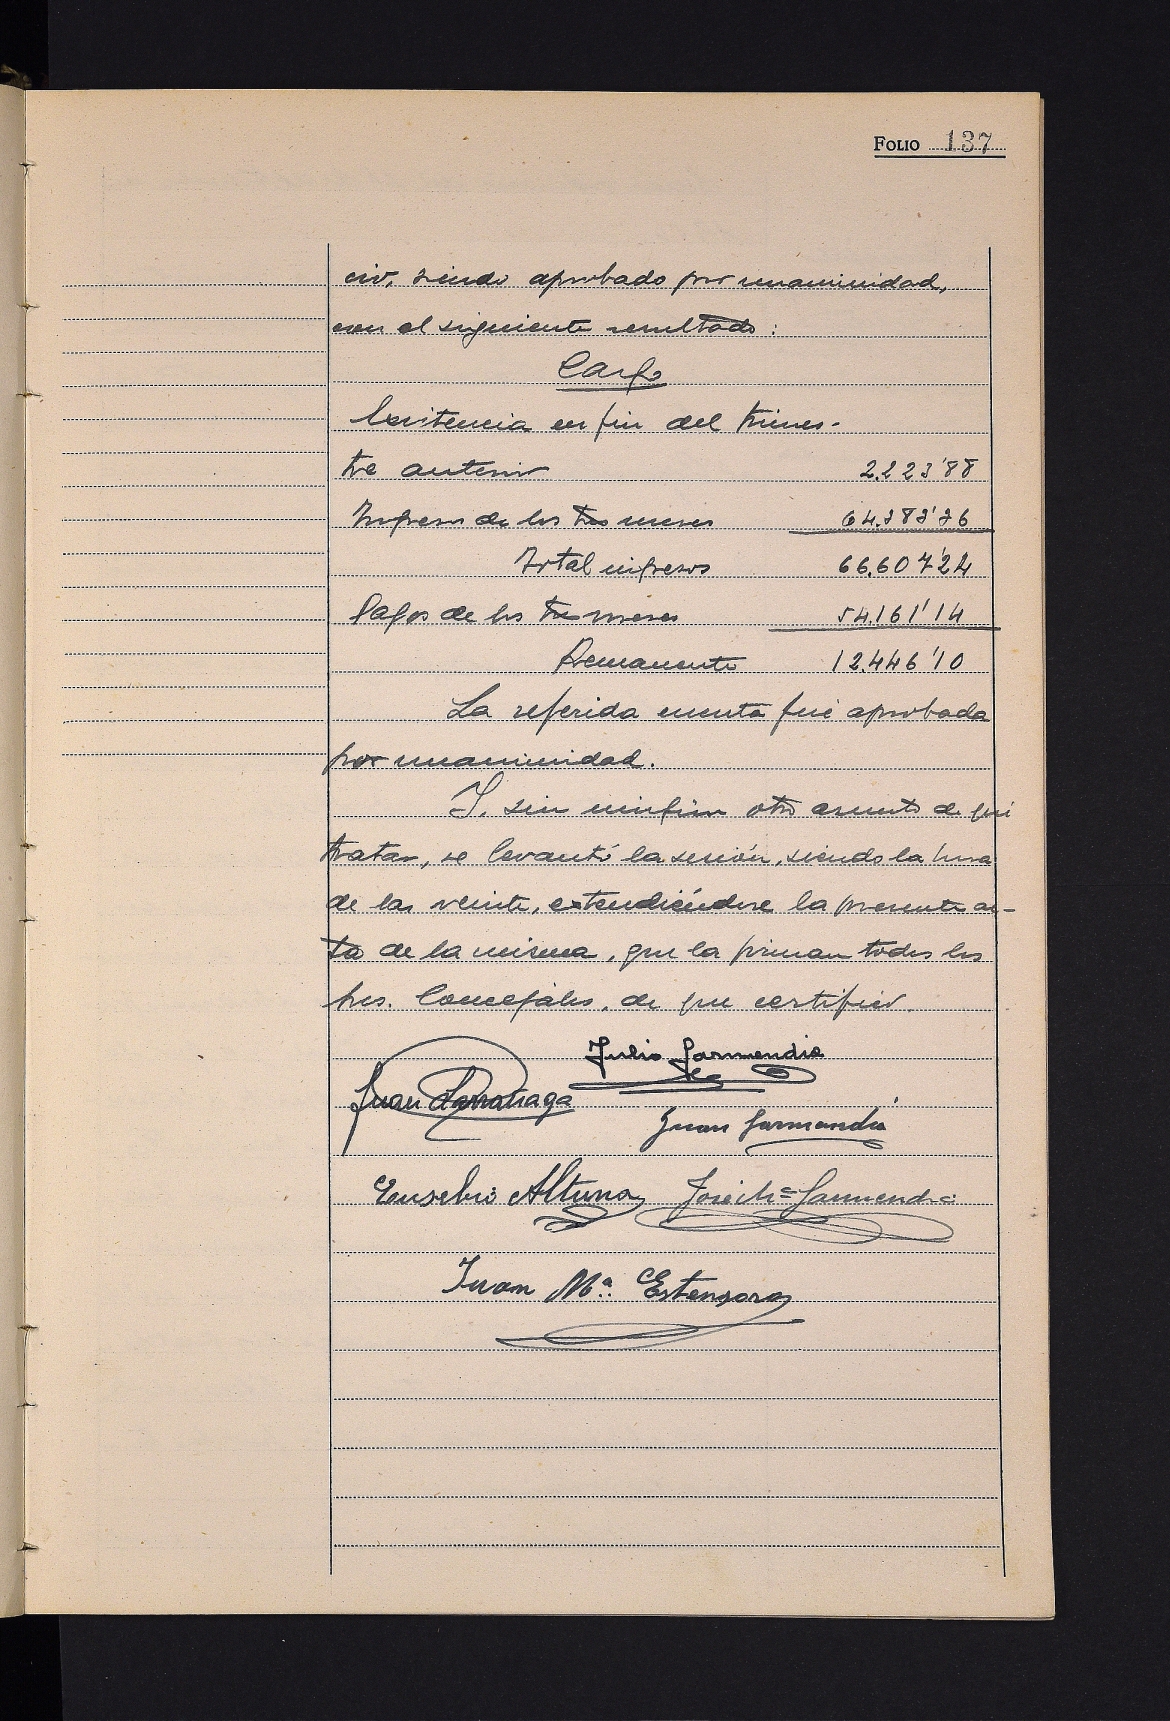 FOLIO 137
cio, siendo aprobado por unanimidad,
con el siguiente resultado:
Cargo
Existencia en fin del trimes-
tre anterior 2.223'88
Ingresos de los tres meses 64.383'36
Total ingresos 66.607'24
Pagos de los tres meses 54.161'14
Remanente 12.446'10
La referida cuenta fué aprobada
por unanimidad.
Y, sin ningún otro asunto de qué
tratar, se levantó la sesión, siendo la hora
de las veinte, extendiéndose la presente ac-
ta de la misma, que la firman todos los
Sres. Concejales, de que certifico.
Julio Garmendia
Juan Larrañaga
Juan Garmendia
Eusebio Altuna José Mª Garmendia
Juan Mª Estensoro